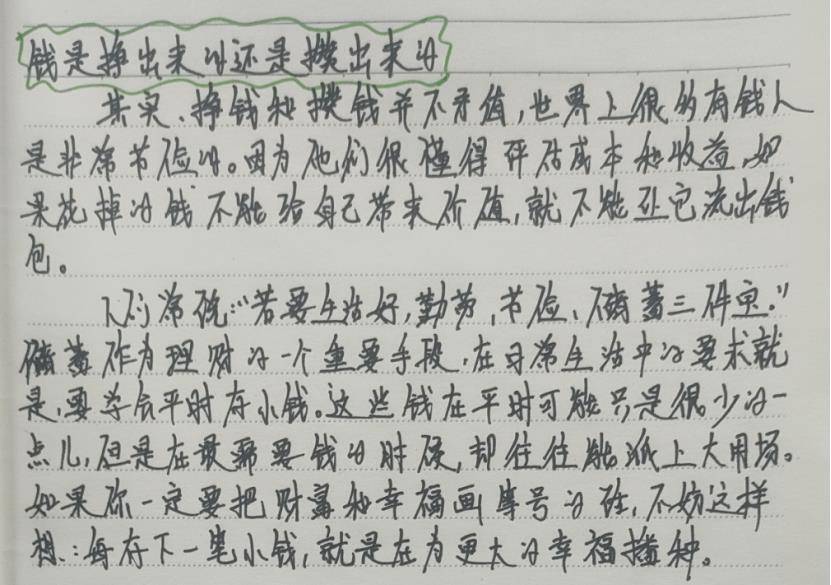 钱是挣出来的还是攒出来的
其实、挣钱和攒钱并不矛盾，世界上很多有钱人
是非常节俭的。因为他们很懂得评估成本和收益，如
果花掉的钱不能给自己带来价值，就不能让它流出钱
包。
人们常说：“若要生活好，勤劳、节俭、储蓄三件宝。”
储蓄作为理财的一个重要手段，在日常生活中的要求就
是，要学会平时存小钱。这些钱在平时可能只是很少的一
点儿，但是在最需要钱的时候，却往往能派上大用场。
如果你一定要把财富和幸福画等号的话，不妨这样
想：每存下一笔小钱，就是在为更大的幸福播种。